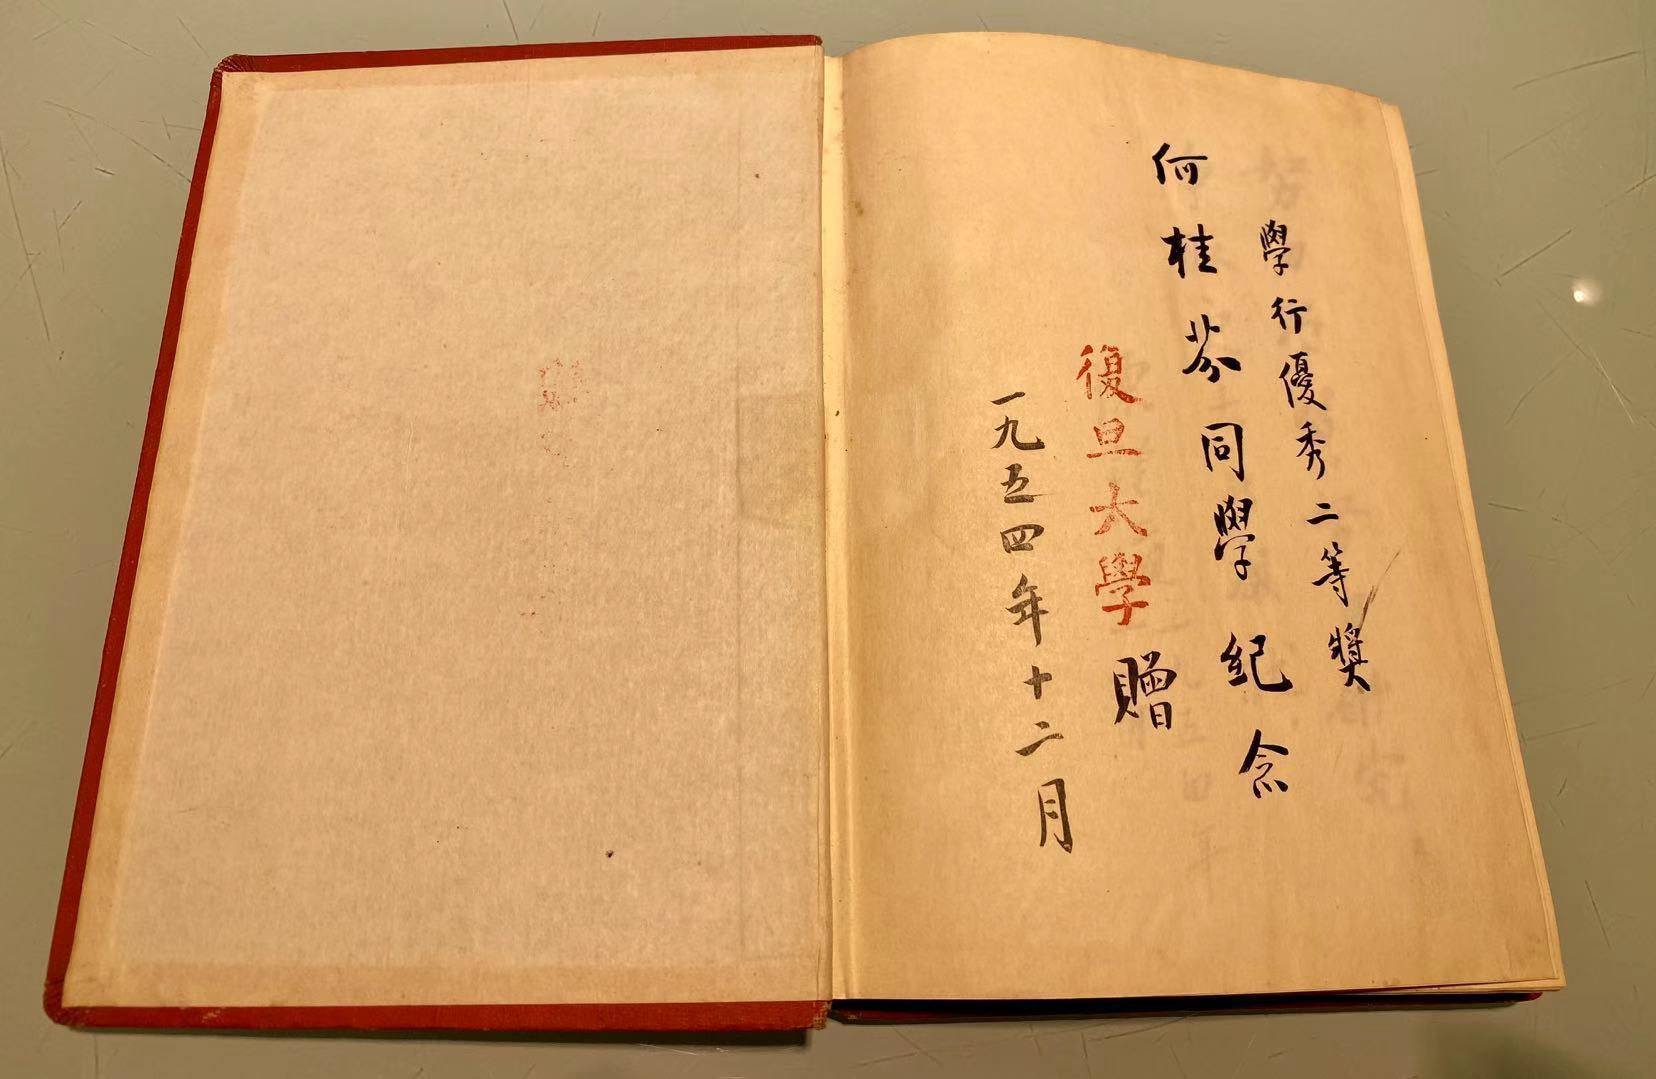 學行優秀二等獎
何桂芬同學紀念
復旦大學贈
一九五四年十二月